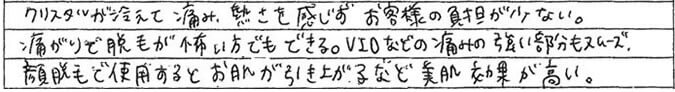 クリスタルが冷えて痛み、熱さを感じず お客様の負担が少ない。
痛がりで脱毛が怖い方でもできる。VIOなどの痛みの強い部分もスムーズ.
顔脱毛で使用するとお肌が引き上がるなど美肌効果が高い。